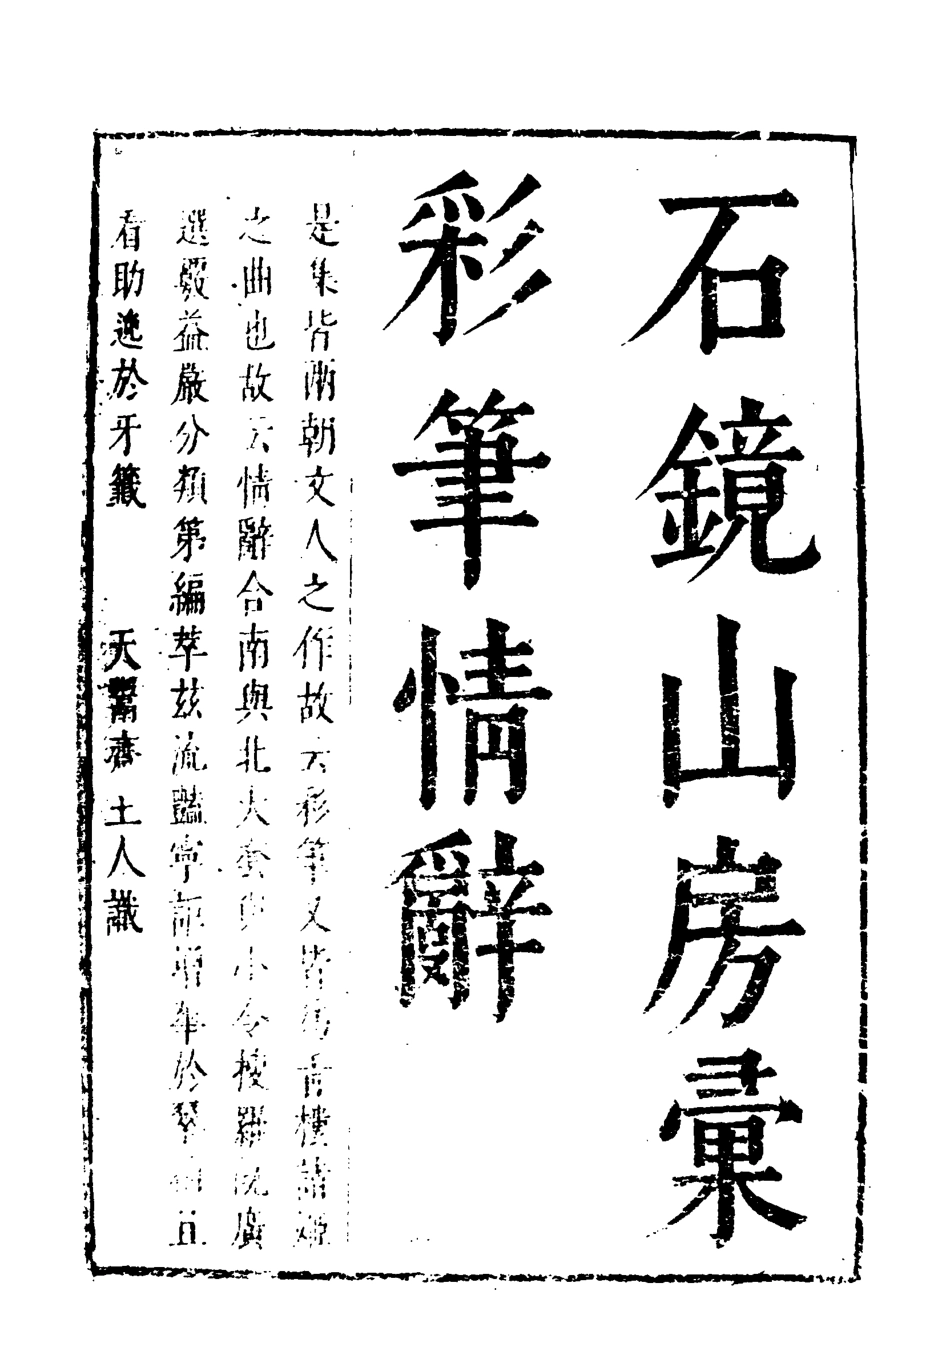 石鏡山房彙
彩筆情辭
是集皆兩朝文人之作故云彩筆又皆爲青樓諸姬
之曲也故云情辭合南與北大套與小令搜羅既廣
選嚴益嚴分類第編萃茲流豔寧詎增華於琴 且
看助逸於牙籤 天 齋主人識